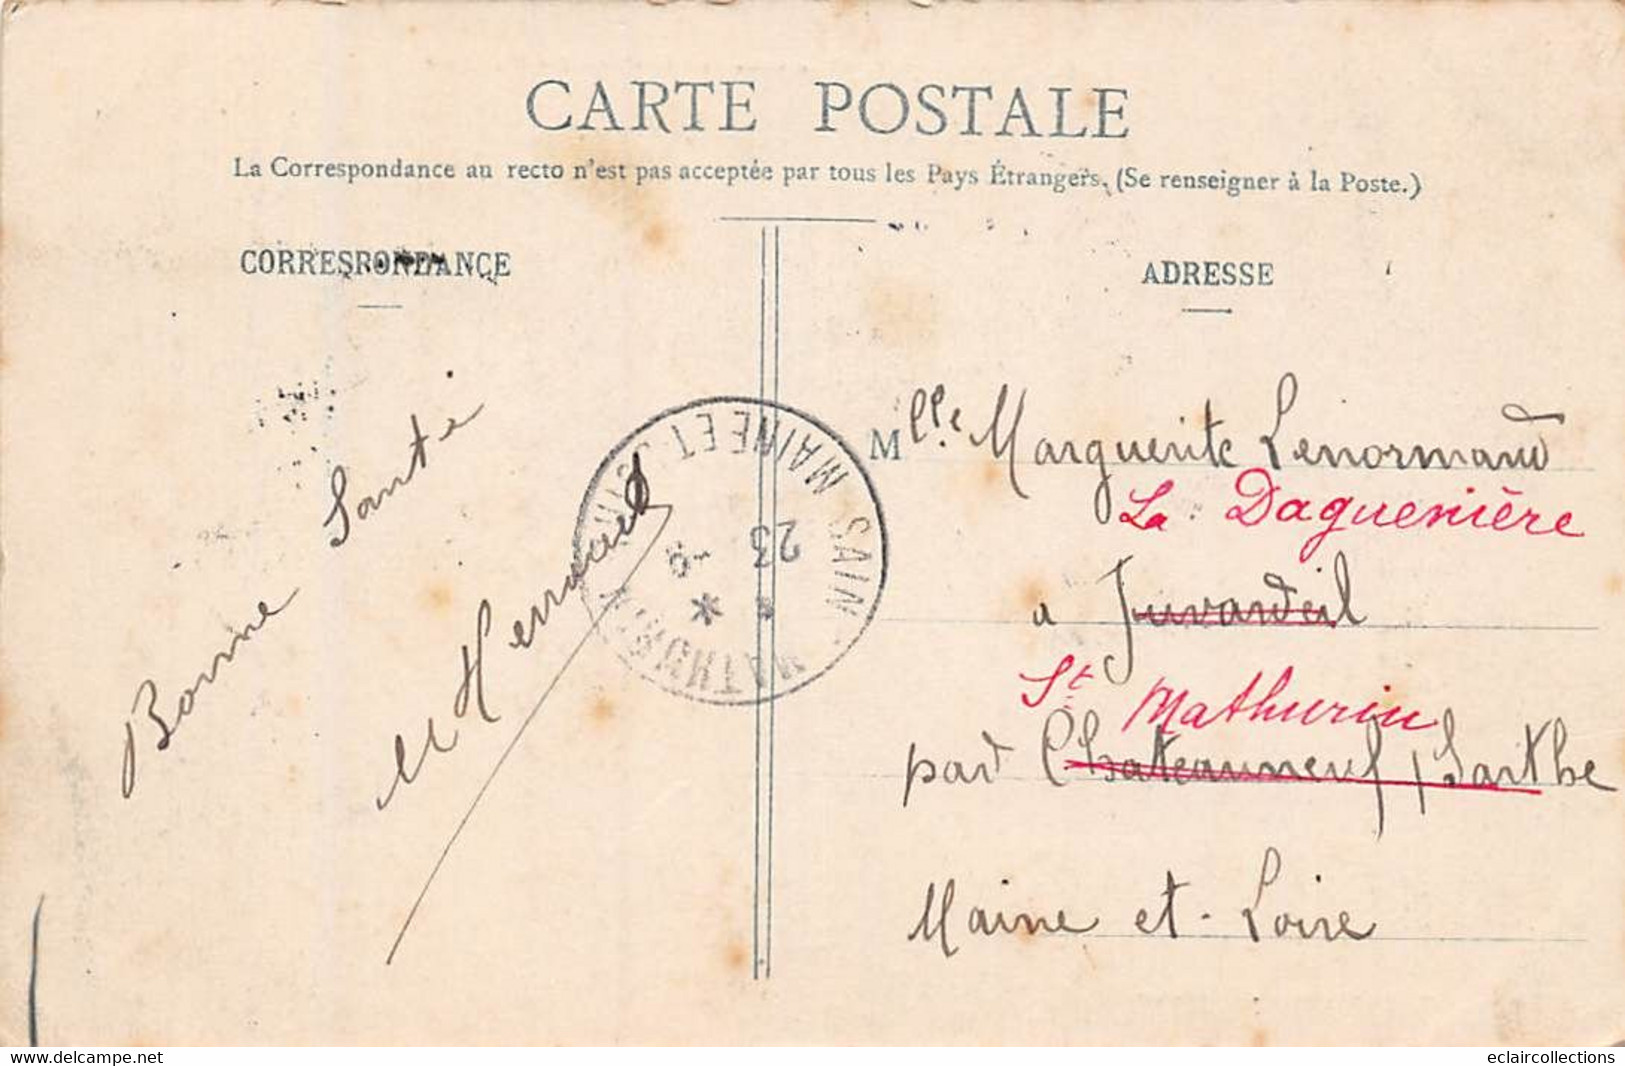 CARTE POSTALE
La Correspondance au recto n'est pas acceptée par tous les Pays Étrangers. (Se renseigner à la Poste.)
CORRESPONDANCE
ADRESSE
Bonne Santé
SAINT MATHURIN
MAINE ET
23
Mlle Marguerite Lenormand
La Daguenière
a Juvardeil
St Mathurin
par Chateauneuf / Sarthe
Maine et-Loire
www.delcampe.net
eclaircollections